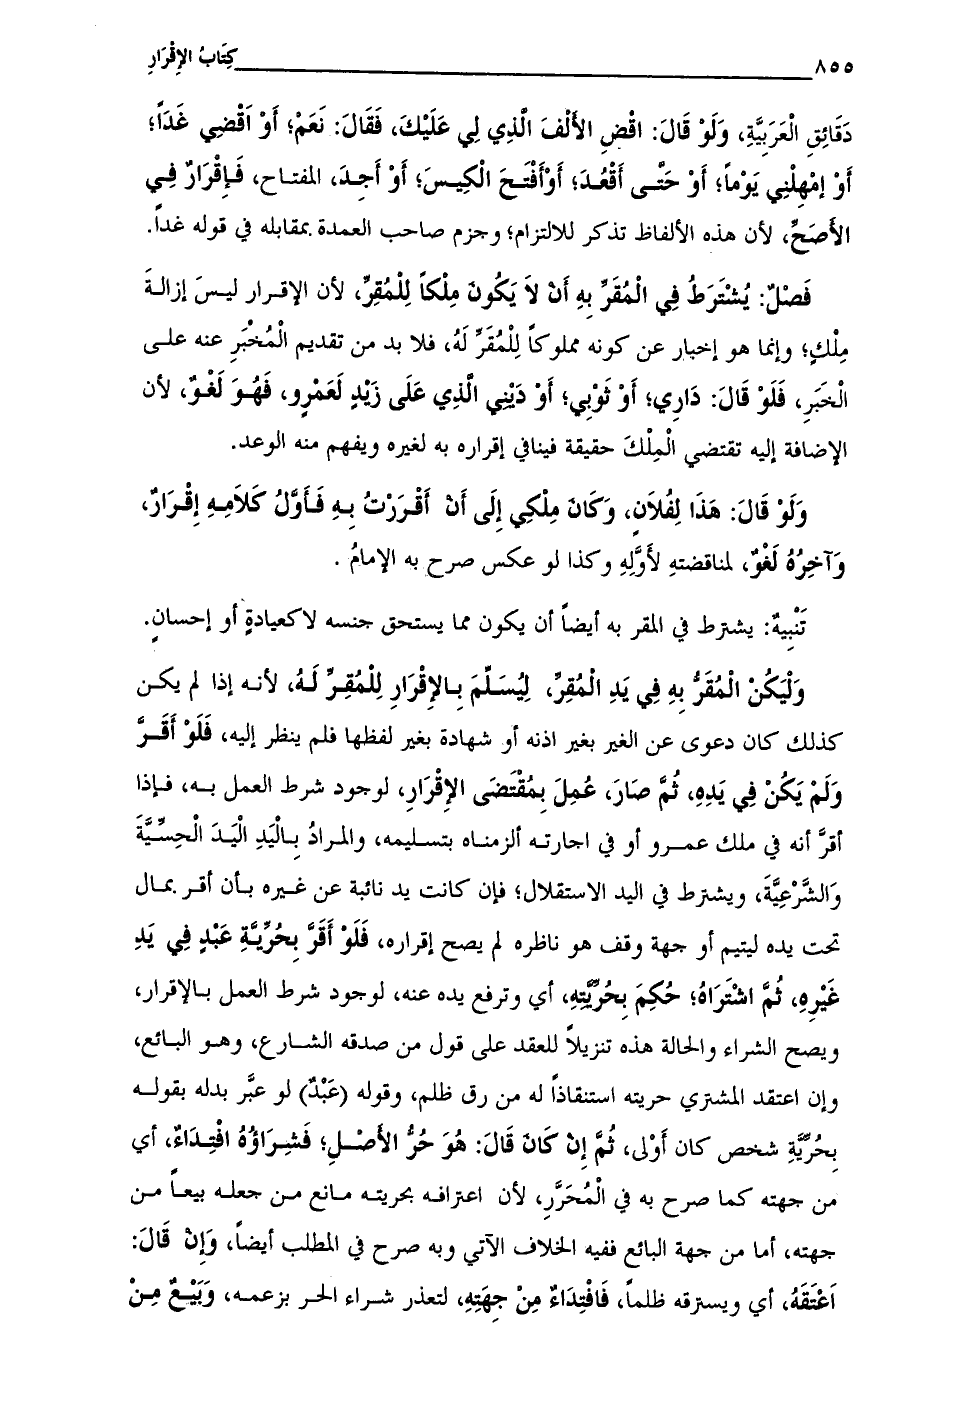 ٨٥٥ كِتَابُ الإِقْرَارِ
دَقَائِقِ الْعَرَبِيَّةِ، وَلَوْ قَالَ: اقْضِ الأَلْفَ الَّذِي لِي عَلَيْكَ، فَقَالَ: نَعَمْ؛ أَوْ اَقْضِي غَدَاً؛
أَوْ إِمْهِلْنِي يَوْماً؛ أَوْ حَتَّى أَقْعُدَ؛ أَوْ أَفْتَحَ الْكِيسَ؛ أَوْ أَجِدَ، المفتاح، فَإِقْرَارٌ فِي
الأَصَحِّ، لأن هذه الألفاظ تذكر للالتزام؛ وجزم صاحب العمدة بمقابله في قوله غداً.
فَصْلٌ: يُشْتَرَطُ فِي الْمُقَرِّ بِهِ أَنْ لاَ يَكُونَ مِلْكاً لِلْمُقِرِّ، لأن الإقرار ليسَ إزالةَ
مِلْكٍ؛ وإنما هو إخبار عن كونه مملوكاً لِلْمُقَرِّ لَهُ، فلا بد من تقديم الْمُخْبَرِ عنه على
الْخَبَرِ، فَلَوْ قَالَ: دَارِي؛ أَوْ ثَوْبِي؛ أَوْ دَيْنِي الَّذِي عَلَى زَيْدٍ لَعَمْرٍو، فَهُوَ لَغْوٌ، لأن
الإضافة إليه تقتضي الْمِلْكَ حقيقة فينافي إقراره به لغيره ويفهم منه الوعد.
وَلَوْ قَالَ: هَذَا لِفُلاَنٍ، وَكَانَ مِلْكِي إِلَى أَنْ أَقْرَرْتُ بِهِ فَأَوَّلُ كَلاَمِهِ إِقْرَارٌ،
وَآخِرُهُ لَغْوٌ، لمناقضتهِ لأَوَّلِهِ وكذا لو عكس صرح به الإمامُ .
تَنْبِيهٌ: يشترط في المقر به أيضاً أن يكون مما يستحق جنسه لا كعيادةٍ أو إحسانٍ.
وَلْيَكُنْ الْمُقَرُّ بِهِ فِي يَدِ الْمُقِرِّ، لِيُسَلَّمَ بِالإِقْرَارِ لِلْمُقِرِّ لَهُ، لأنه إذا لم يكن
كذلك كان دعوى عن الغير بغير اذنه أو شهادة بغير لفظها فلم ينظر إليه، فَلَوْ أَقَرَّ
وَلَمْ يَكُنْ فِي يَدِهِ، ثُمَّ صَارَ، عُمِلَ بِمُقْتَضَى الإِقْرَارِ، لوجود شرط العمل به، فإذا
أقرَّ أنه في ملك عمرو أو في اجارته ألزمناه بتسليمه، والمرادُ بِالْيَدِ الْيَدَ الْحِسِّيَّةَ
وَالشَّرْعِيَّةَ، ويشترط في اليد الاستقلال؛ فإن كانت يد نائبة عن غيره بأن أقر بمال
تحت يده ليتيم أو جهة وقف هو ناظره لم يصح إقراره، فَلَوْ أَقَرَّ بِحُرِّيَّةِ عَبْدٍ فِي يَدِ
غَيْرِهِ، ثُمَّ اشْتَرَاهُ؛ حُكِمَ بِحُرِّيَّتِهِ، أي وترفع يده عنه، لوجود شرط العمل بالإقرار،
ويصح الشراء والحالة هذه تنزيلاً للعقد على قول من صدقه الشارع، وهو البائع،
وإن اعتقد المشتري حريته استنقاذاً له من رق ظلم، وقوله (عَبْدٌ) لو عبَّر بدله بقوله
بِحُرِّيَّةِ شخص كان أَوْلى، ثُمَّ إِنْ كَانَ قَالَ: هُوَ حُرُّ الأَصْلِ؛ فَشِرَاؤُهُ افْتِدَاءٌ، أي
من جهته كما صرح به في الْمُحَرَّرِ، لأن اعترافه بحريته مانع من جعله بيعاً من
جهته، أما من جهة البائع ففيه الخلاف الآتي وبه صرح في المطلب أيضاً، وَإِنْ قَالَ:
اَعْتَقَهُ، أي ويسترقه ظلماً، فَافْتِدَاءٌ مِنْ جِهَتِهِ، لتعذر شراء الحر بزعمه، وَبَيْعٌ مِنْ